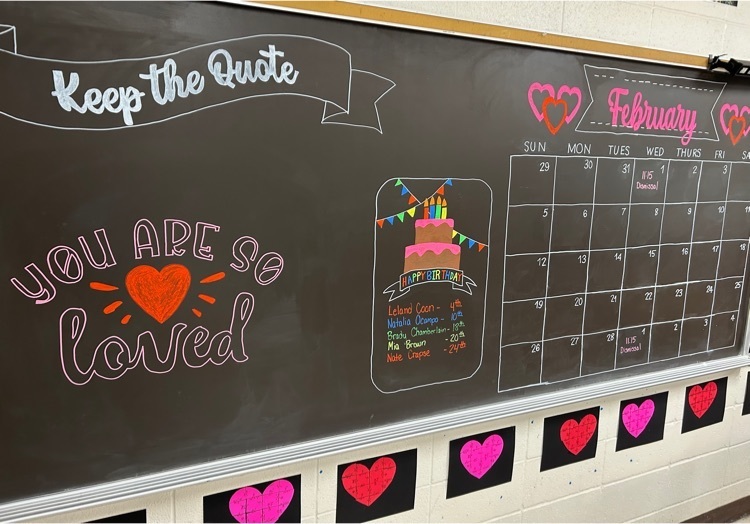 Keep the Quote
YOU ARE SO
loved
HAPPY BIRTHDAY
Leland Coon - 4th
Natalia Ocampo - 10th
Brady Chamberlain - 18th
Mia Brown - 20th
Nate Crapse - 24th
February
SUN MON TUES WED THURS FRI SA
29 30 31 1 2 3
11:15
Dismissal
5 6 7 8 9 10 11
12 13 14 15 16 17 18
19 20 21 22 23 24 25
26 27 28 1 2 3 4
11:15
Dismissal